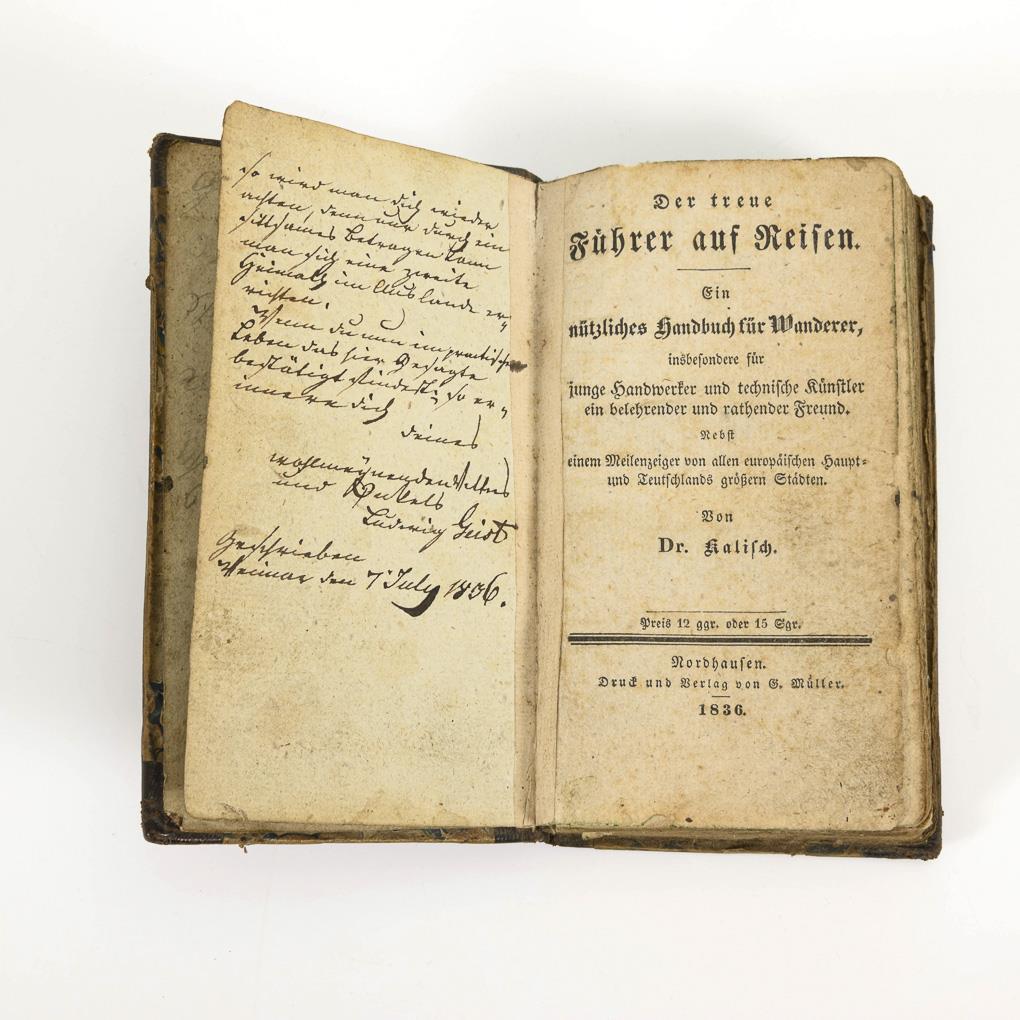 so wird man dich wieder
achten, denn nur durch ein
sittsames Betragen kann
man sich eine zweite
Heimath im Auslande er-
richten.
Wenn du nun im practischen
Leben das hier Gesagte
bestätigt findest; so er-
innere dich
deines
wohlmeynenden Vetters
und Onkels
Ludwig Geist
Geschrieben
Weimar den 7 July 1836.
Der treue
Führer auf Reisen.
Ein
nützliches Handbuch für Wanderer,
insbesondere für
junge Handwerker und technische Künstler
ein belehrender und rathender Freund.
Nebst
einem Meilenzeiger von allen europäischen Haupt-
und Teutschlands größern Städten.
Von
Dr. Kalisch.
Preis 12 ggr. oder 15 Sgr.
Nordhausen.
Druck und Verlag von G. Müller.
1836.